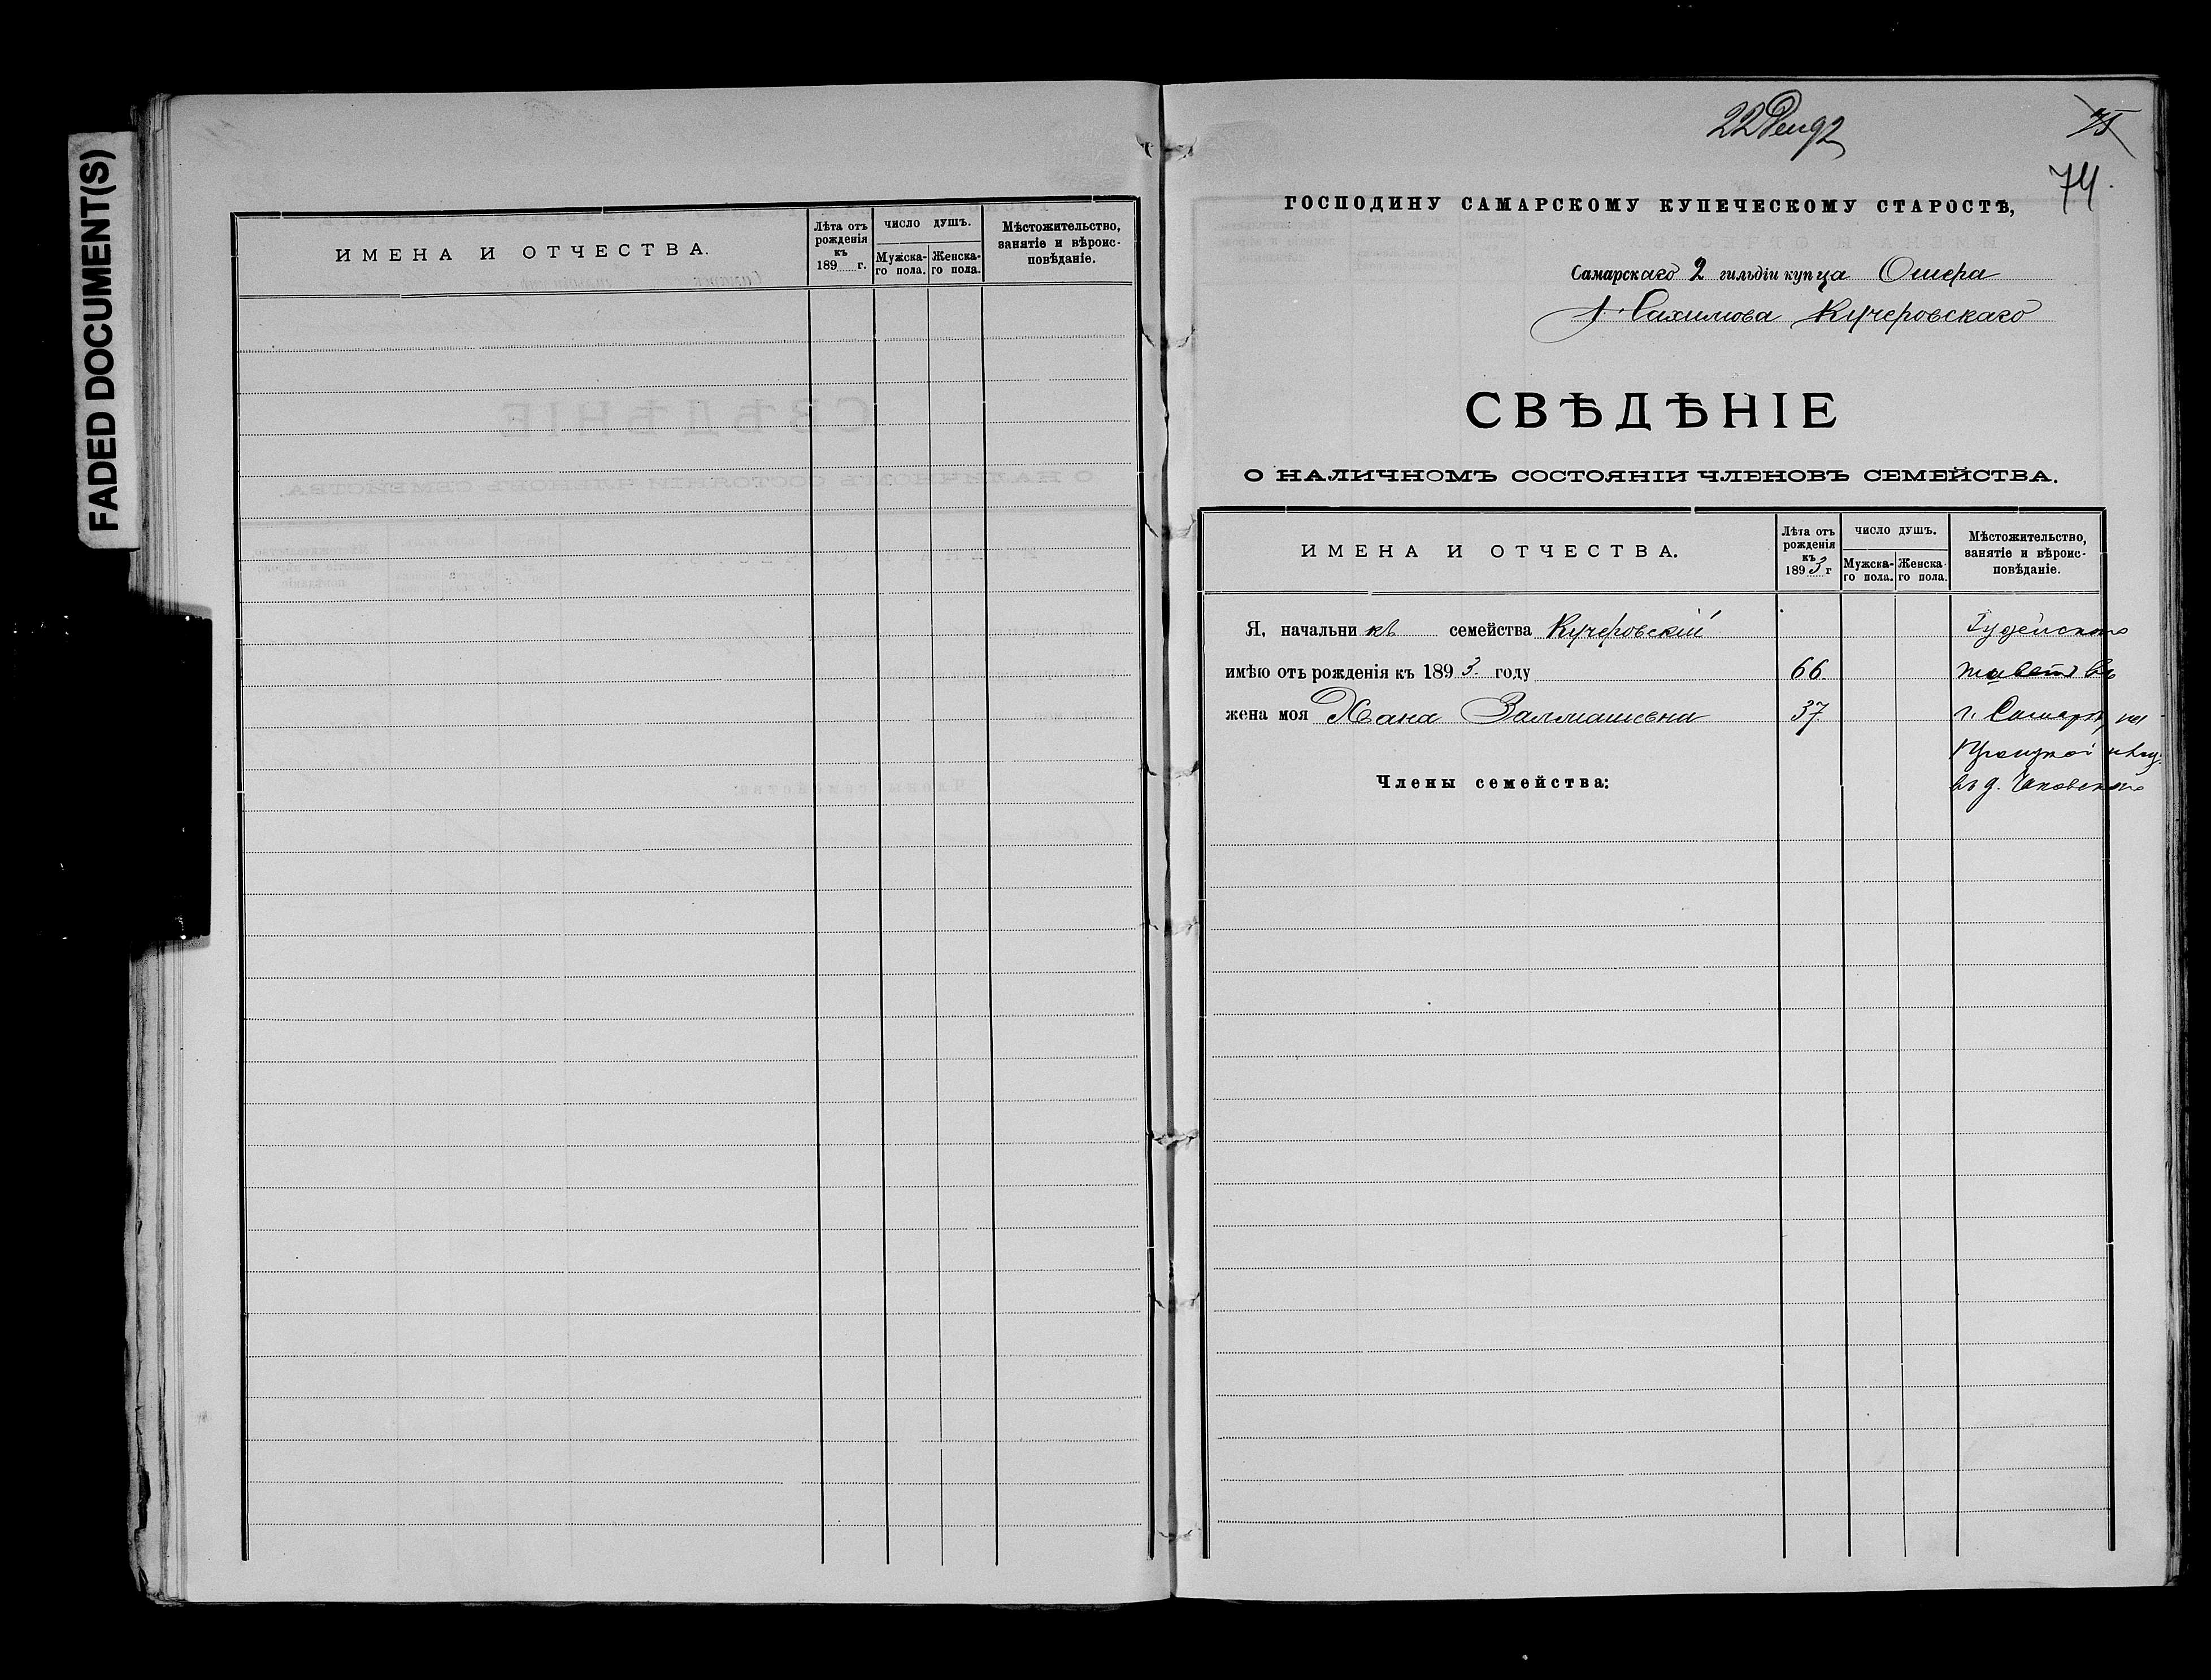 FADED DOCUMENT(S)
ИМЕНА И ОТЧЕСТВА.
Лѣта отъ рожденія къ 189 г.
ЧИСЛО ДУШЪ.
Мужска-го пола.
Женска-го пола.
Мѣстожительство, занятіе и вѣроис-повѣданіе.
22 92
75
74.
ГОСПОДИНУ САМАРСКОМУ КУПЕЧЕСКОМУ СТАРОСТѢ,
Самарскаго 2 гильдіи купца Ошера
Кучеровскаго
СВѢДѢНІЕ
О НАЛИЧНОМЪ СОСТОЯНІИ ЧЛЕНОВЪ СЕМЕЙСТВА.
ИМЕНА И ОТЧЕСТВА.
Лѣта отъ рожденія къ 1893 г
ЧИСЛО ДУШЪ.
Мужска-го пола.
Женска го пола.
Мѣстожительство, занятіе и вѣроис-повѣданіе.
Я, начальникъ семейства Кучеровскій Іудейскаго
имѣю отъ рожденія къ 1893. году 66. живетъ въ
жена моя Хана Залмановна 37 г. Самарѣ, на
Троицкой
Члены семейства: въ д.